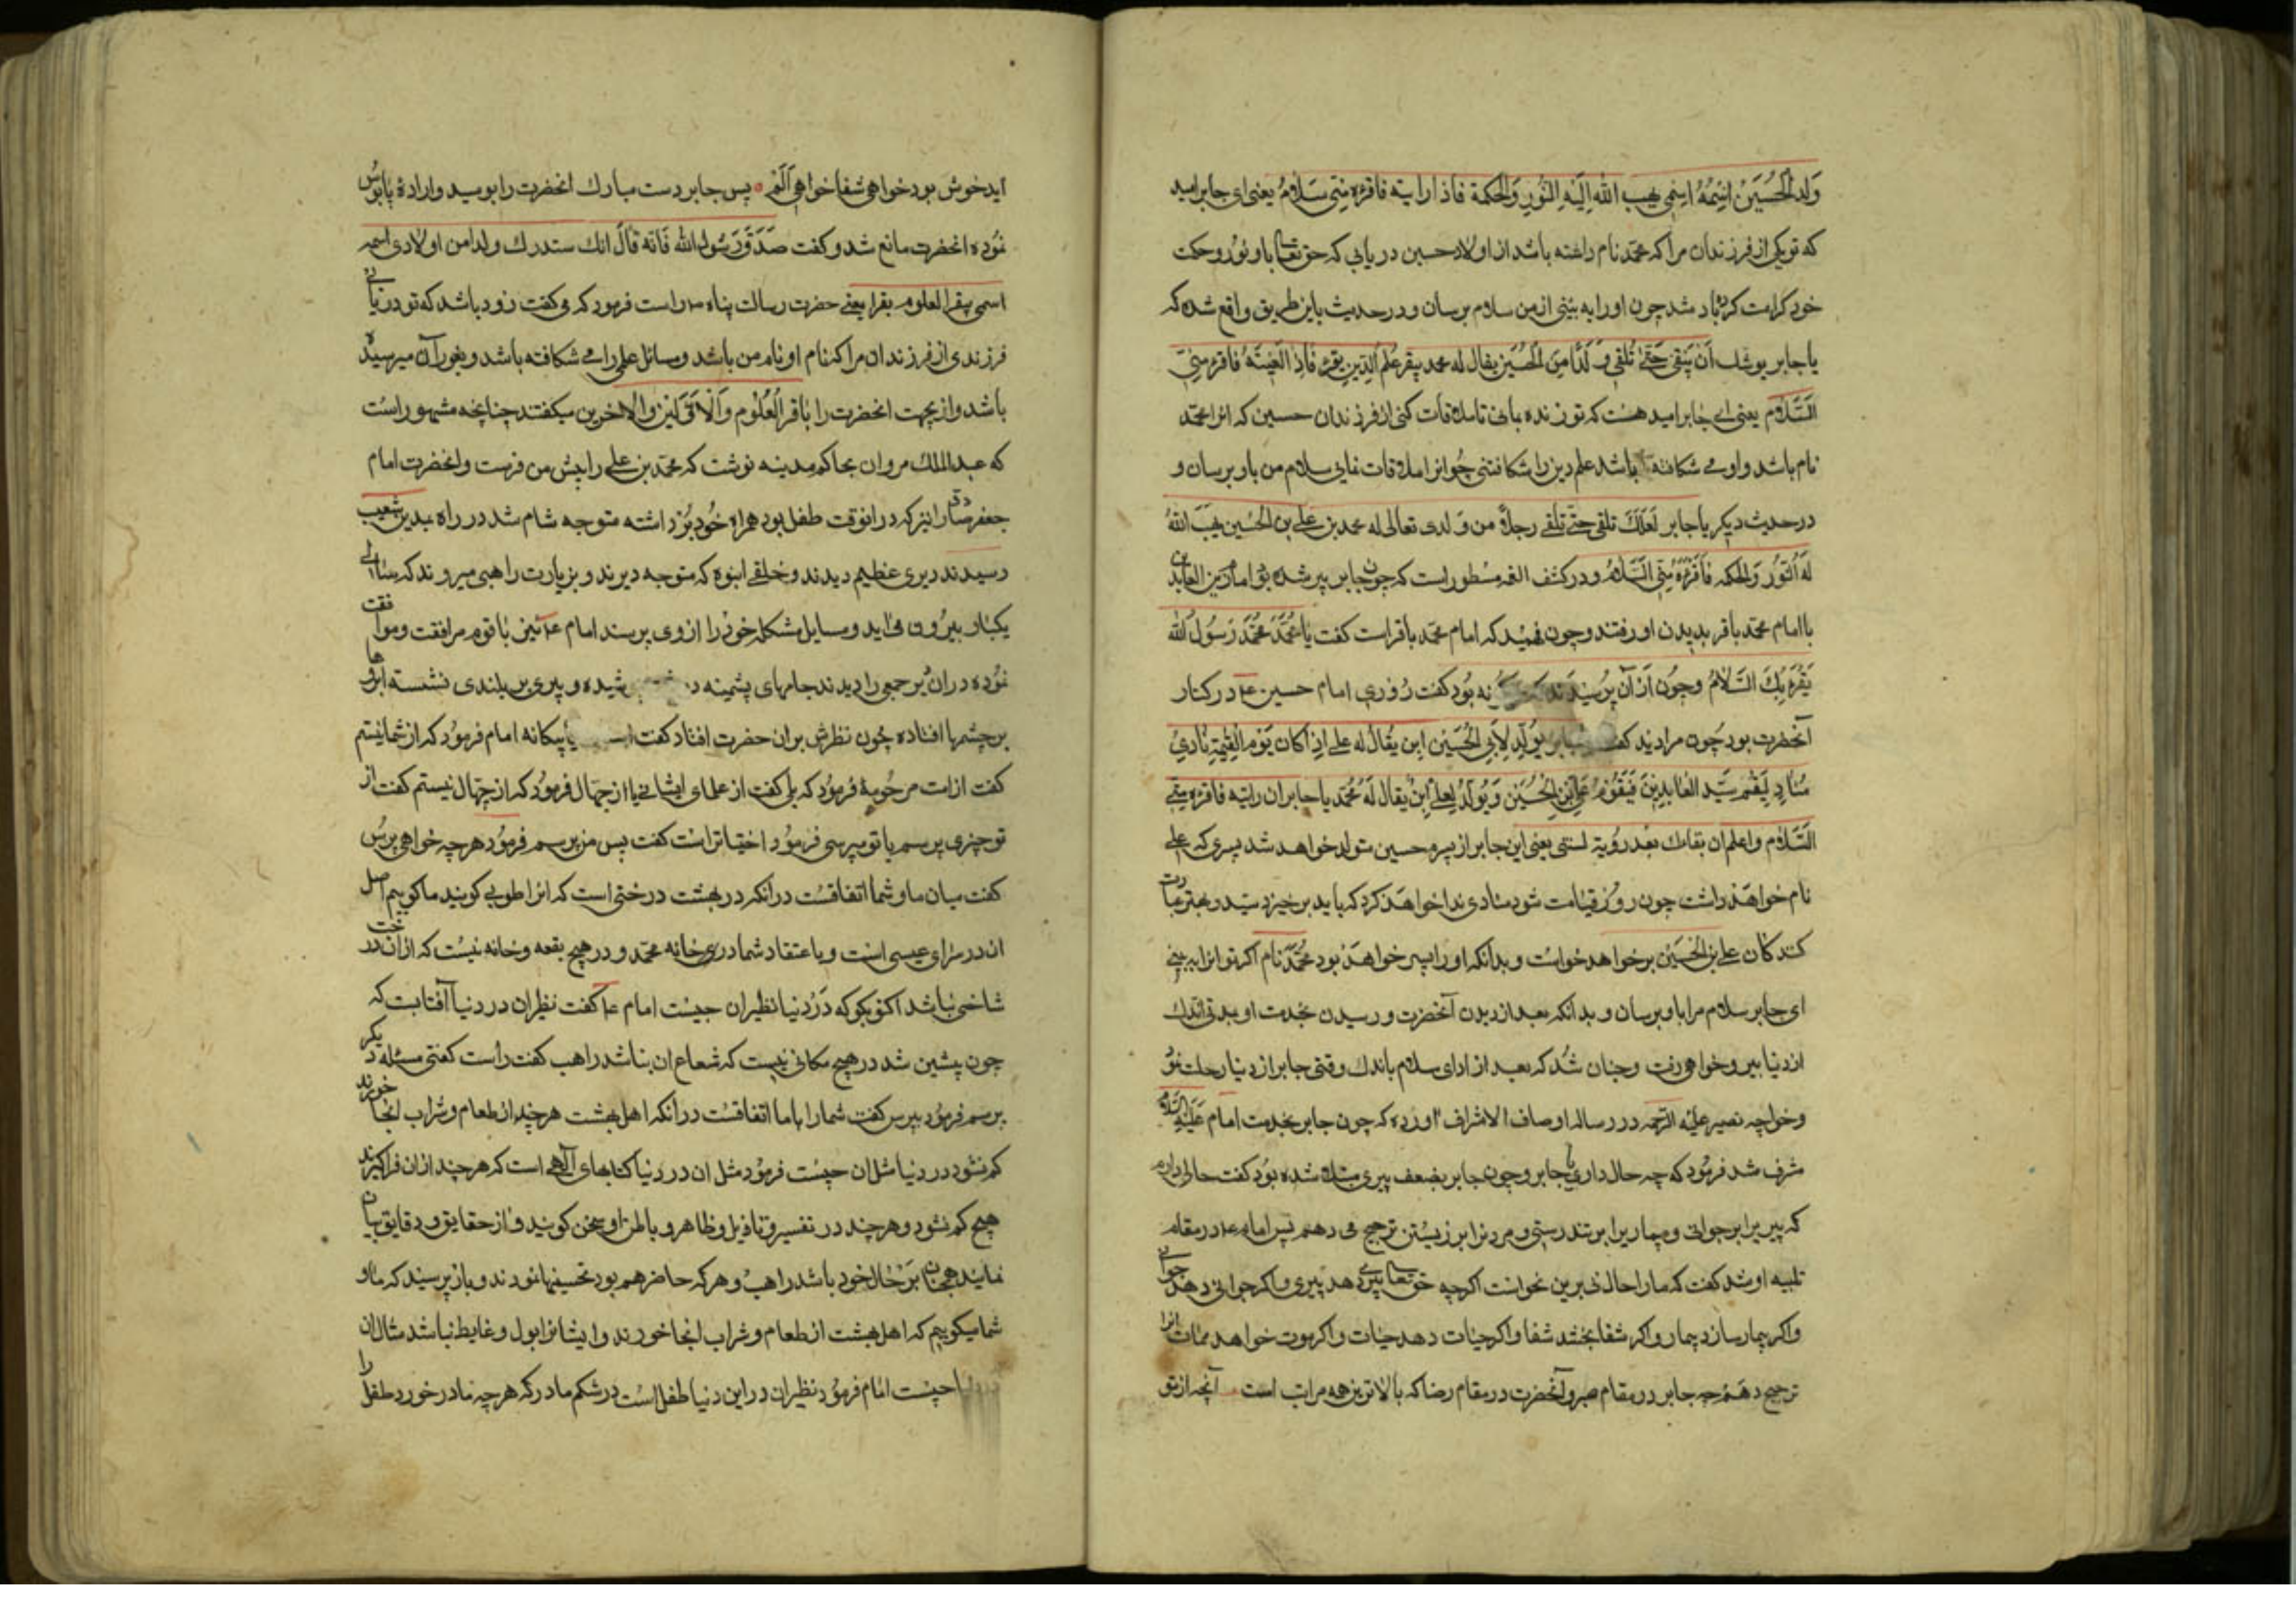 وَلَد الْحُسَيْن اسْمُهُ اسمی یهب الله اِلَيْهِ النُّور وَالحکمة فاذا رایته فاقرئه مِنّی سَلامُ یعنی ای جابر امید
که تو یکی از فرزندان مرا که محمّد نام داشته باشد از اولاد حسین دریابی که حق تعا باو نور و حکمت
خود کرامت کرده باشد چون او را به بینی از من سلام برسان و در حدیث باین طریق واقع شده که
یا جابر یوشك اَن تبقی حَتّی تُلقی وَلَدًا مِنَ الْحُسَین یقال له محمد یبقر عِلم الدین بقرا فَاِذا لَقیتَهُ فاقرئه مِنّی
السَّلام یعنی ای جابر امید هست که تو زنده بانی تا ملاقات کنی از فرزندان حسین که انرا محمّد
نام باشد و او می شکافته باشد علم دین را شکافتنی چو انرا ملاقات نمایی سلام من باو برسان و
در حدیث دیکر یا جابر لَعَلّكَ تلقی حتّی تلقی رجلاً من وَلدی تعالی له محمد بن علی بن الحُسَین یَهَبَ اللهُ
لَهُ النُّور وَالحکمه فَاَقرِئهُ مِنّی السَّلامُ و در کشف الغمه مسطور است که چون جابر پیر شده بو امام زین العابدین
با امام محمّد باقر بدیدن او رفتند و چون فهمید که امام محمّد باقر است کفت یا مُحَمَّد مُحَمَّد رَسُولُ الله
یَقرَءُكَ السَّلامُ وچون از آن پرسیدند که نه بود کفت روزی امام حسین ع در کنار
آنحضرت بود چون مرا دید کفت جابر یُولَد لِابنی الحُسَین ابن یُقالُ له علی اذا کان یَوم القِیمَة نادی
مُنادٍ لِیَقُم سَیّد العَابِدِینَ فَیَقُومُ عَلی بنِ الْحُسَین وَ یُولَدُ لِعلی اِبنٌ یقال لَهُ مُحَمّد یا جابر ان رایته فاقرئه منّی
السَّلام واعلم ان بقاك بَعد رؤیة لستی یعنی این جابر از پسرم حسین متولد خواهد شد پسری که علی
نام خواهد داشت چون روز قیامت شود منادی ندا خواهد کرد که باید برخیزد سید و بهتر عبادت
کنندکان علی بن الحُسَین برخواهد خواست و بدانکه او را پسر خواهد بود محمّد نام اکر تو انرا ببینی
ای جابر سلام مرا باو برسان و بدانکه بعد از دیدن آنحضرت و رسیدن بخدمت او بمدتی اندك
از دنیا بیر و خواهی رفت و چنان شد که بعد از ادای سلام باندك وقتی جابر از دنیا رحلت نمود
وخواجه نصیر علیه الرحمه در رساله اوصاف الاشراف آورده که چون جابر بخدمت امام عَلَیه السَّلام
مشرف شد فرمود که چه حال داری یا جابر وچون جابر بضعف پیری مبتلا شده بود کفت حالی دارم
که پیری را بر جوانی و بیماری را بر تندرستی و مردنرا بر زیستن ترجیح می دهم پس امام ع در مقام
تلبیه او شد کفت که ما را حال خبر من نخواست اکرچه حق تعا پیری دهد پیری و اکر جوانی دهد جوانی
واکر بیمار سازد بیمار واکر شفا بخشد شفا واکر حیات دهد حیات واکر موت خواهد ممات انرا
ترجیح دهم چه جابر در مقام صبر و آنحضرت در مقام رضا که بالاترین همه مراتب است آنچه از تو
اید خوش بود خواهی شفا خواهی اَلَم پس جابر دست مبارك انحضرت را بوسید واراده پابوس
نموده انحضرت مانع شد و کفت صَدَقَ رَسُولُ الله فَانَّه قالَ انك ستدرك ولدا من اولادی اسمه
اسمی یبقر العلوم بقرا یعنی حضرت رسالت پناه ص راست فرمود که می کفت زود باشد که تو دریابی
فرزندی از فرزندان مرا که نام او نام من باشد ومسائل علمی را می شکافته باشد وبغور آن میرسیده
باشد واز یجهت انحضرت را باقر العُلُوم وَالاَوَّلین والآخرین میکفتند چنانچه مشهور است
که عبدالملك مروان بحاکم مدینه نوشت که محمّد بن علی را پیش من فرست وانحضرت امام
جعفر صادق را نیز که در انوقت طفل بود همراه خود بَرداشته متوجه شام شد در راه بمدین شعیب
رسیدند دیری عظیم دیدند وخلقی انبوه که متوجه دیرند وبزیارت راهبی میروند که سالی
یکبار بیرون می اید ومسایل مشکله خود را از وی پرسند امام ع نیز با قوم مرافقت وموافقت
نموده در ان دیر جمعی را دیدند جامهای پشمینه در شیده و پیری بر بلندی نشسته ابروها
بر چشمها افتاده چون نظرش بران حضرت افتاد کفت یا بیکانه امام فرمود که از شما نیستم
کفت از امت مرحُومهٔ فرمود که بلی کفت از علمای ایشانی یا از جهال فرمود که از جهال نیستم کفت از
تو چیزی پرسم یا تو میپرسی فرمود اختیار تراست کفت پس من پرسم فرمود هرچه خواهی پرس
کفت میان ما وشما اتفاقست در انکه در بهشت درختی است که انرا طوبی کویند ما کوییم اصل
ان در سرای عیسی است وباعتقاد شما در خانه محمّد و در هیچ بقعه وخانه نیست که از ان درخت
شاخی نباشد اکنو بکو که دَر دنیا نظیر ان چیست امام ع کفت نظیر ان در دنیا آفتابت که
چون پیشین شد در هیچ مکانی نیست که شعاع ان نباشد راهب کفت راست کفتی مسئله دیکر
پرسم فرمود بپرس کفت شما را با ما اتفاقست در انکه اهل بهشت هر چند از طعام وشراب انجا خورند
کم نشود در دنیا مثل ان چیست فرمود مثل ان در دنیا کتابهای آلهی است که هر چند از ان فراکیرند
هیچ کم نشود وهر چند در تفسیر وتاویل وظاهر وباطن او سخن کویند واز حقایق ودقایق بیان
نمایند همچنان بَر حال خود باشد راهب و هر که حاضر هم بود تحسینها نمودند وباز پرسیند که ما و
شما میکوییم که اهل بهشت از طعام وشراب انجا خورند وایشانرا بول وغایط نباشد مثال ان
چیست امام فرمود نظیر ان در این دنیا طفل است در شکم مادر که هر چه مادر خورد طفل را